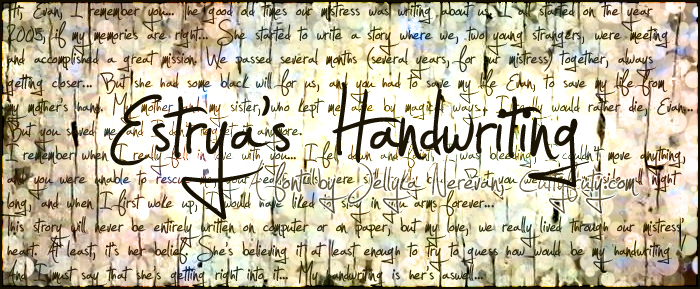 Hi, Evan, I remember you... The good old times our mistress was writing about us. It all started on the year
2005, if my memories are right... She started to write a story where we, two young strangers, were meeting
and accomplished a great mission. We passed several months (several years, for our mistress) together, always
getting closer... But she had some black will for us, and you had to save my life Evan, to save my life from
my mother's hand. My mother and my sister, who kept me by magical ways. I would rather die, Evan...
But you saved me and I don't anymore.
Estrya's Handwriting
I remember when I really fell in love with you... I fell down and I was bleeding couldn't move anything,
and you were unable to rescue But you all night
font by Jellyka Nerevan www.cuttyfruty.com
long, and when I first woke up, I would have liked to stay in your arms forever...
This story will never be entirely written on computer or on paper, but my love, we really lived through our mistress'
heart. At least, it's her belief. She's believing it at least enough to try to guess how would be my handwriting
And I must say that she's getting right into it... My handwriting is her's aswell...